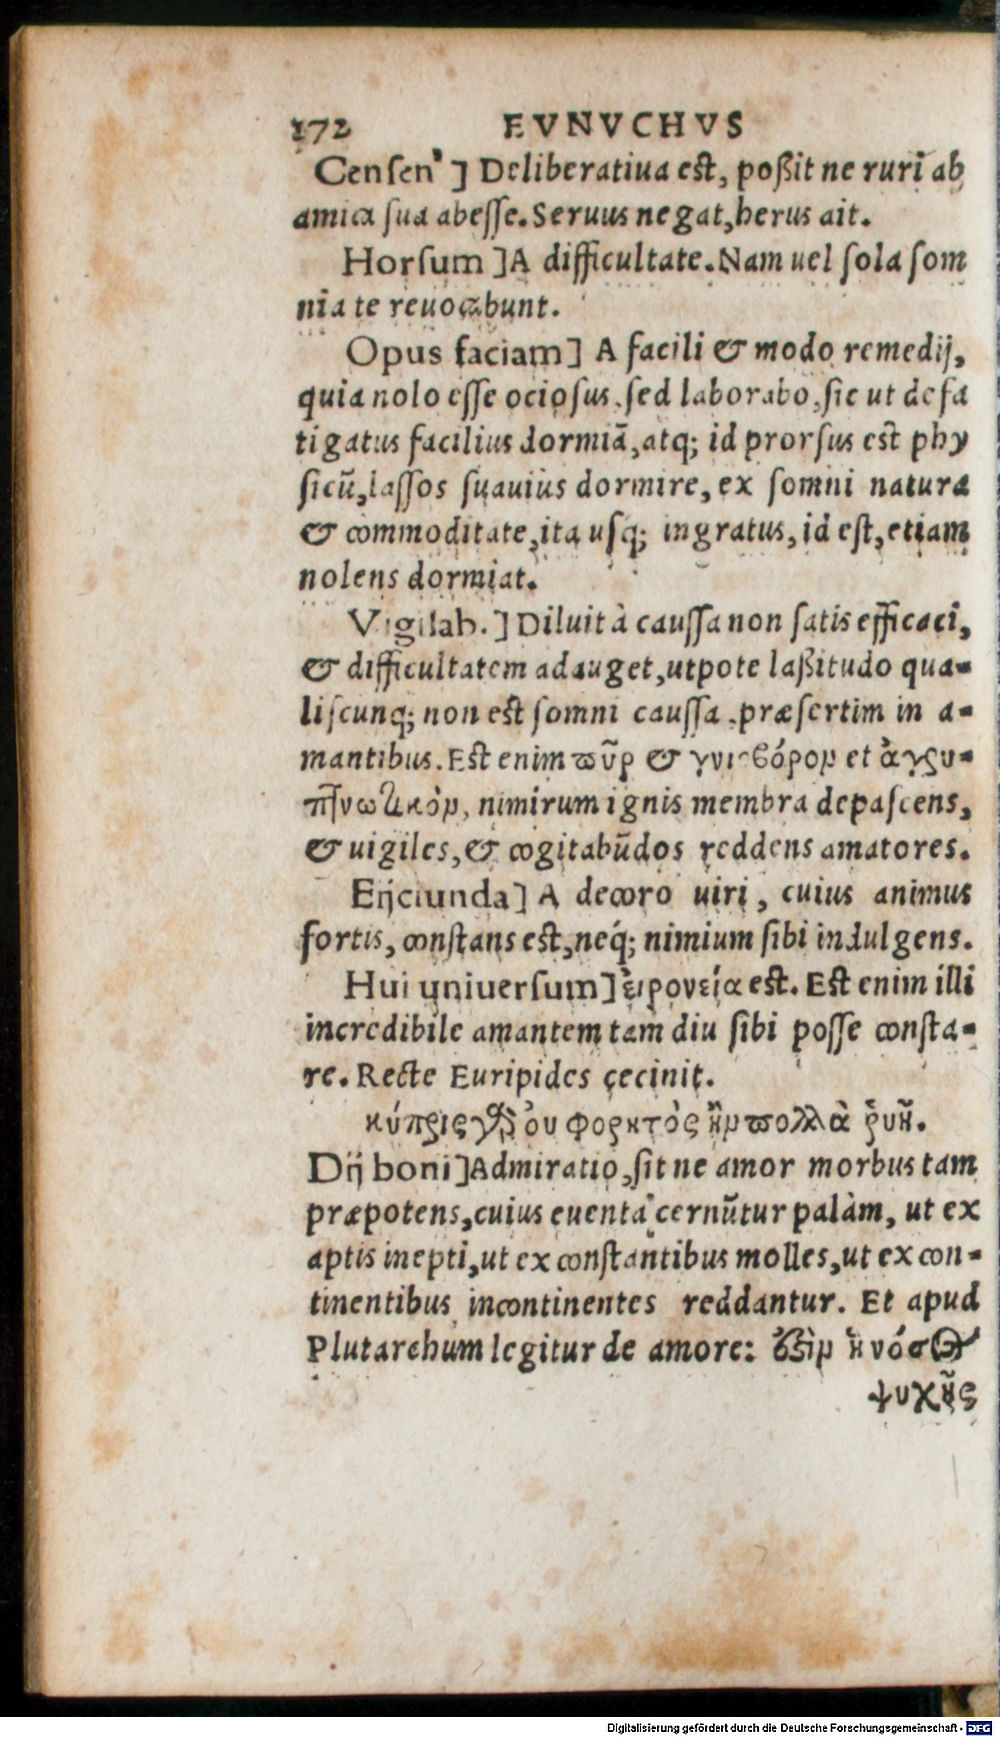 172 EVNVCHVS
Censen'] Deliberatiua est, poßit ne ruri ab
amica sua abesse. Seruus negat, herus ait.
Horsum ] A difficultate. Nam uel sola som
nia te reuocabunt.
Opus faciam] A facili & modo remedij,
quia nolo esse ociosus, sed laborabo, sic ut defa
tigatus facilius dormiā, atq; id prorsus est phy
sicū, lassos suauius dormire, ex somni natura
& commoditate, ita usq; ingratus, id est, etiam
nolens dormiat.
Vigilab.] Diluit à caussa non satis efficaci,
& difficultatem adauget, utpote laßitudo qua-
liscunq; non est somni caussa, præsertim in a-
mantibus. Est enim πῦρ & γυιοβόρον et ἀγρυ-
πνωτικὸν, nimirum ignis membra depascens,
& uigiles, & cogitabūdos reddens amatores.
Eijciunda] A decoro uiri, cuius animus
fortis, constans est, neq́; nimium sibi indulgens.
Hui uniuersum] εἰρονεία est. Est enim illi
incredibile amantem tam diu sibi posse consta-
re. Recte Euripides cecinit.
κύπρις γὰρ ὀυ φορητὸς ἢν πολλὰ ῥυῆ.
Dij boni] Admiratio, sit ne amor morbus tam
præpotens, cuius euenta cernūtur palàm, ut ex
aptis inepti, ut ex constantibus molles, ut ex con-
tinentibus incontinentes reddantur. Et apud
Plutarchum legitur de amore: ἐξὶν ἡ νόσος
ψυχῆς
Digitalisierung gefördert durch die Deutsche Forschungsgemeinschaft - DFG